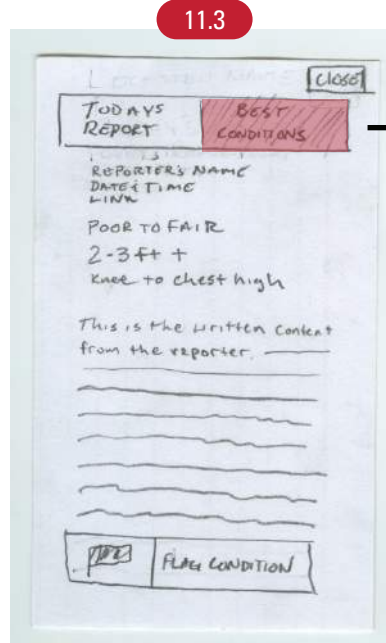 11.3
CLOSE
TODAYS
REPORT
BEST
CONDITIONS
REPORTER'S NAME
DATE & TIME
LINK
POOR TO FAIR
2-3 ft +
Knee to chest high
This is the written content
from the reporter.
FLAG CONDITION